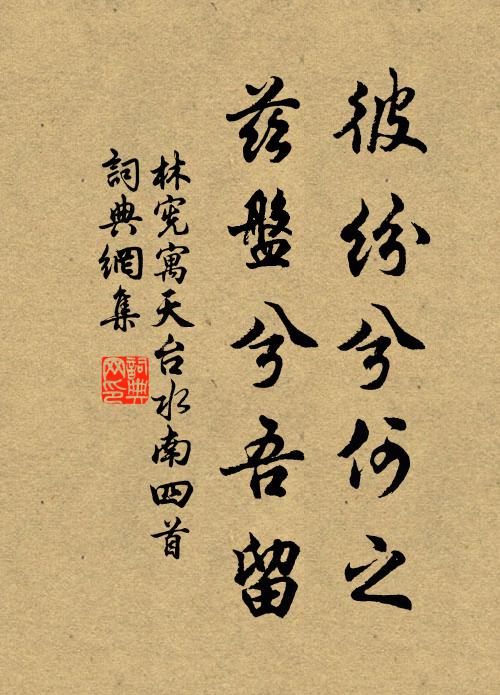 彼紛兮何之
茲盤兮吾留
林宪寓天台水南四首
詞典網集
詞典網印